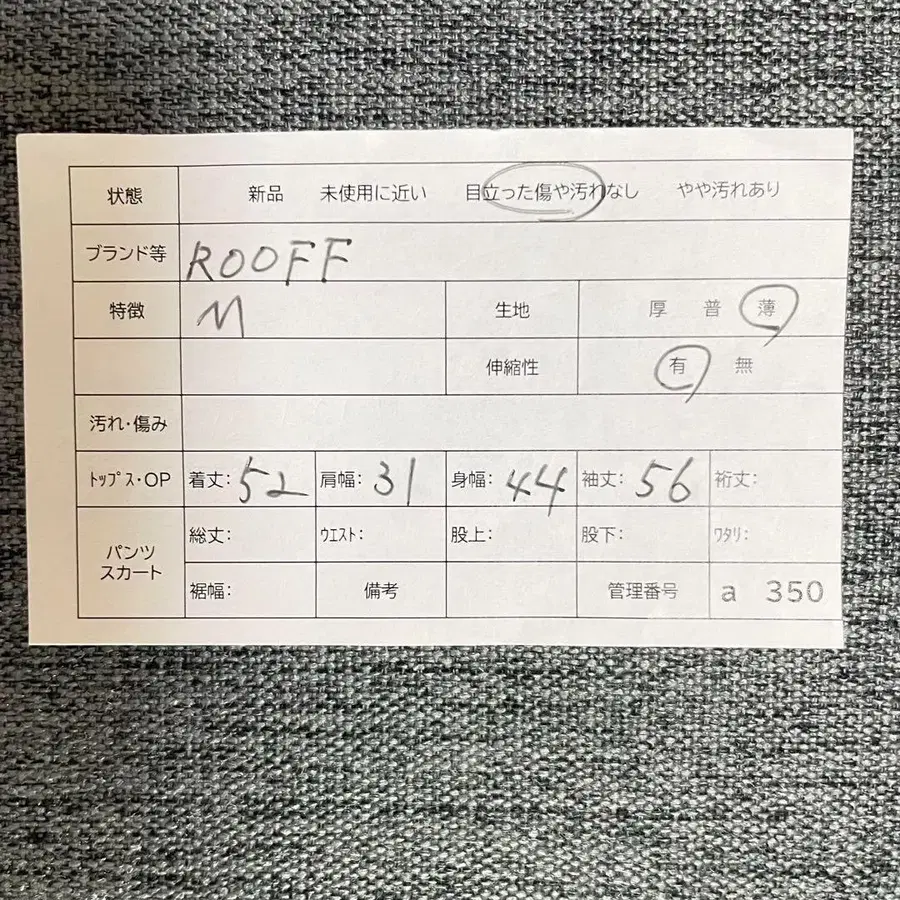 状態 新品 未使用に近い 目立った傷や汚れなし やや汚れあり
ブランド等 ROOFF
特徴 M 生地 厚 普 薄
伸縮性 有 無
汚れ・傷み
ﾄｯﾌﾟｽ・OP 着丈: 52 肩幅: 31 身幅: 44 袖丈: 56 裄丈:
パンツ スカート 総丈: ｳｴｽﾄ: 股上: 股下: ﾜﾀﾘ:
裾幅: 備考 管理番号 a 350